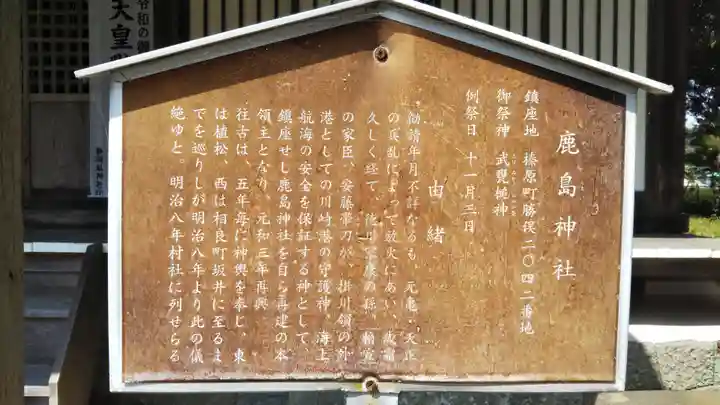 鹿島神社
鎮座地 榛原町勝俣二〇四二番地
御祭神 武甕槌神
例祭日 十一月三日
由緒
勧請年月不詳なるも、元亀、天正
の兵乱によって放火にあい、
久しく経て、徳川家康の孫、頼宣
の家臣、安藤帯刀が、掛川領の外
港としての川崎港の守護神、海上
航海の安全を保証する神として、
鎮座せし鹿島神社を自ら再建の本
領主となり、元和三年再興
往古は、五年毎に神輿を奉じ、東
は植松、西は相良町坂井に至るま
でを巡りしが明治八年より此の儀
絶ゆと。明治八年村社に列せらる
令和の御
天皇